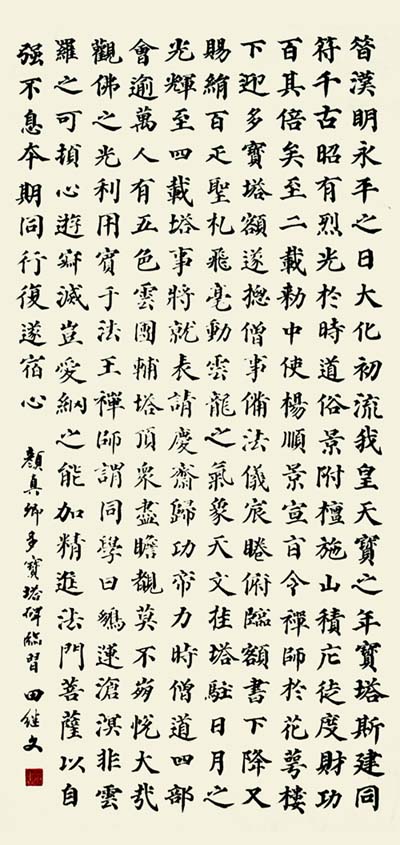 昔漢明永平之日大化初流我皇天寶之年寶塔斯建同
符千古昭有烈光於時道俗景附檀施山積庀徒度財功
百其倍矣至二載勑中使楊順景宣旨令禪師於花萼樓
下迎多寶塔額遂揔僧事備法儀宸睠俯臨額書下降又
賜絹百疋聖札飛毫動雲龍之氣象天文挂塔駐日月之
光輝至四載塔事將就表請慶齋歸功帝力時僧道四部
會逾萬人有五色雲團輔塔頂衆盡瞻覩莫不崩悅大哉
觀佛之光利用賓于法王禪師謂同學曰鵬運滄溟非雲
羅之可頓心遊寂滅豈愛網之能加精進法門菩薩以自
强不息本期同行復遂宿心
顏真卿多寶塔碑臨習 田继文